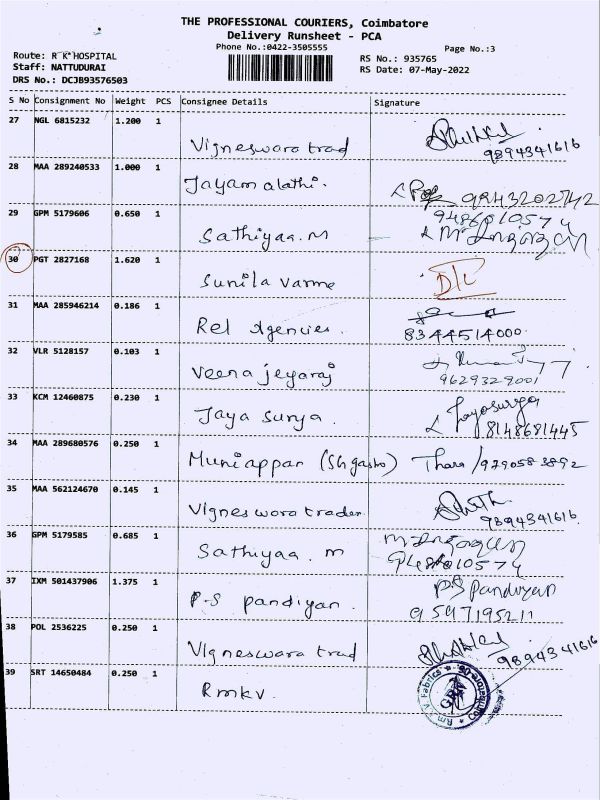 THE PROFESSIONAL COURIERS, Coimbatore
Delivery Runsheet - PCA
Phone No.:0422-3505555
Page No.:3
Route: R K HOSPITAL
Staff: NATTUDURAI
DRS No.: DCJB93576503
RS No.: 935765
RS Date: 07-May-2022
S No Consignment No Weight PCS Consignee Details Signature
27 NGL 6815232 1.200 1
Vigneswara trad
9894341616
28 MAA 289240533 1.000 1
Jayam alathi.
9843202742
29 GPM 5179606 0.650 1
9486010574
Sathiyaa.M
30 PGT 2827168 1.620 1
Sunila varme D/L
31 MAA 285946214 0.186 1
Rel Agencies.
8344514000
32 VLR 5128157 0.103 1
Veena jeyaraj
9629329001
33 KCM 12460875 0.230 1
Jaya Surya. Jayasurya
8148681445
34 MAA 289680576 0.250 1
Muniappan
35 MAA 562124670 0.145 1
Vigneswora trader
9894341616
36 GPM 5179585 0.685 1
Sathiyaa. M
9486010574
37 IXM 501437906 1.375 1
P.S pandiyan. PS Pandiyan
9597195211
38 POL 2536225 0.250 1
Vigneswara trad
9894341616
39 SRT 14650484 0.250 1
Rmkv.